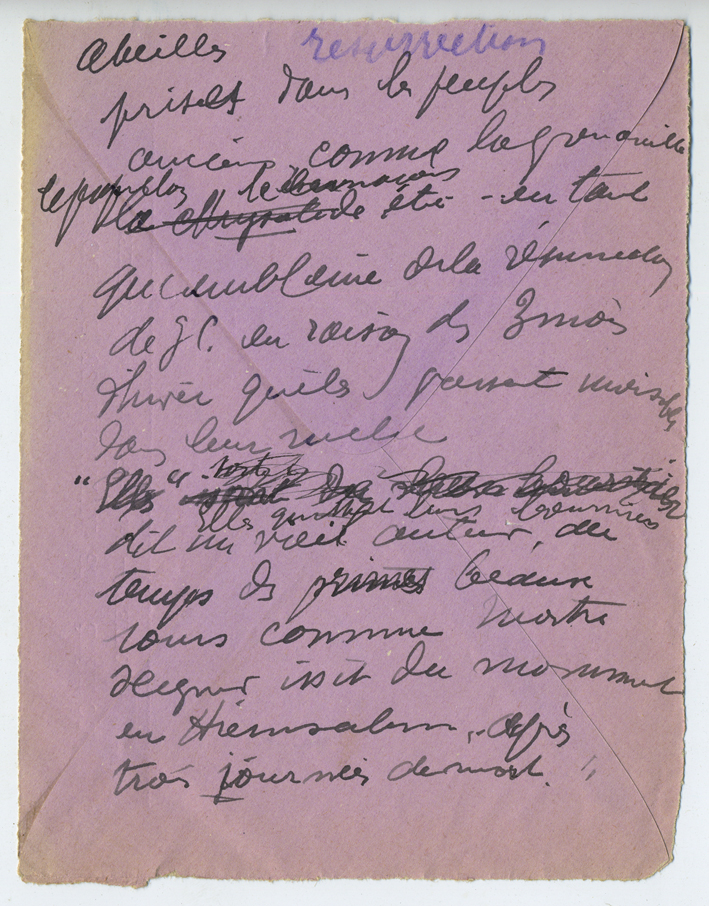 abeilles resurrection
prises dans les peuples
anciens comme la grenouille
le papillon le
la chrysalide été - en tant
qu'emblème de la résurrection
de J C. en raison des 3 mois
d'hiver qu'elles passent invisibles
dans leur ruche
"Elles" sont
Elles quittent leurs
dit un vieil auteur, au
temps des primes beaux
jours comme nostre
Seigneur issit du monument
en Hierusalem, après
trois journées de mort. "